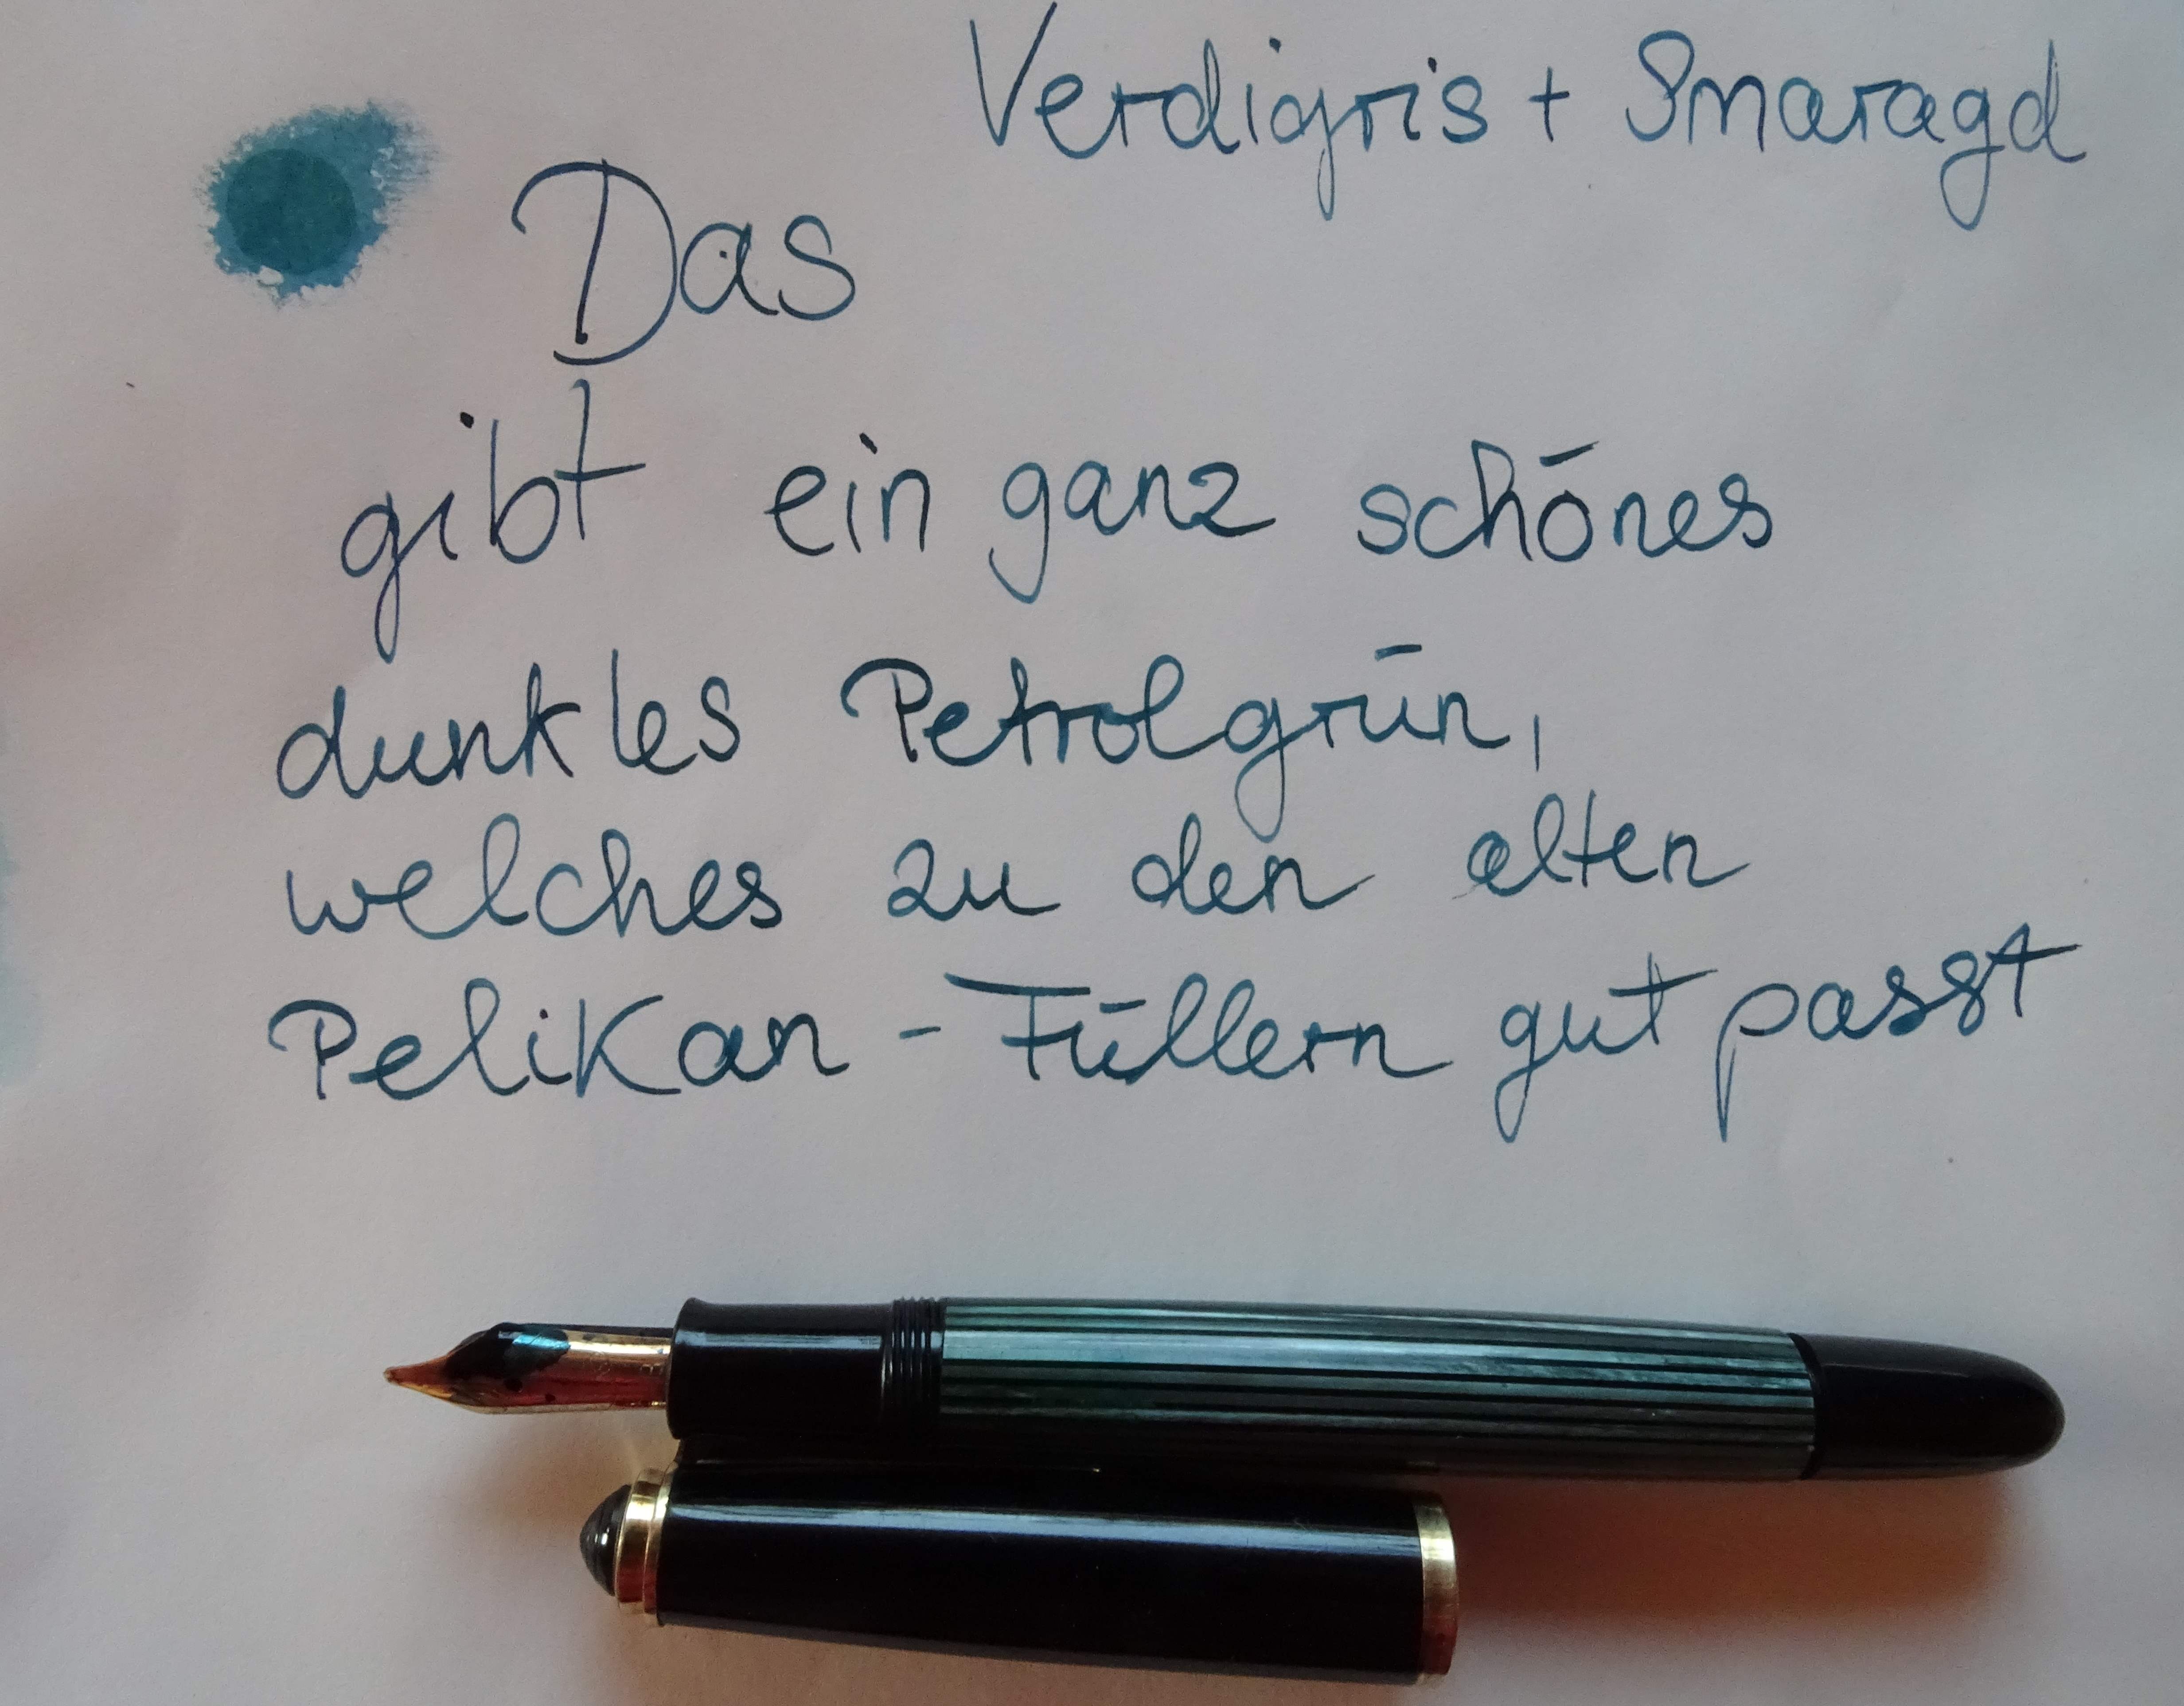 Verdigris + Smaragd
Das
gibt ein ganz schönes
dunkles Petrolgrün,
welches zu den alten
Pelikan - Füllern gut passt